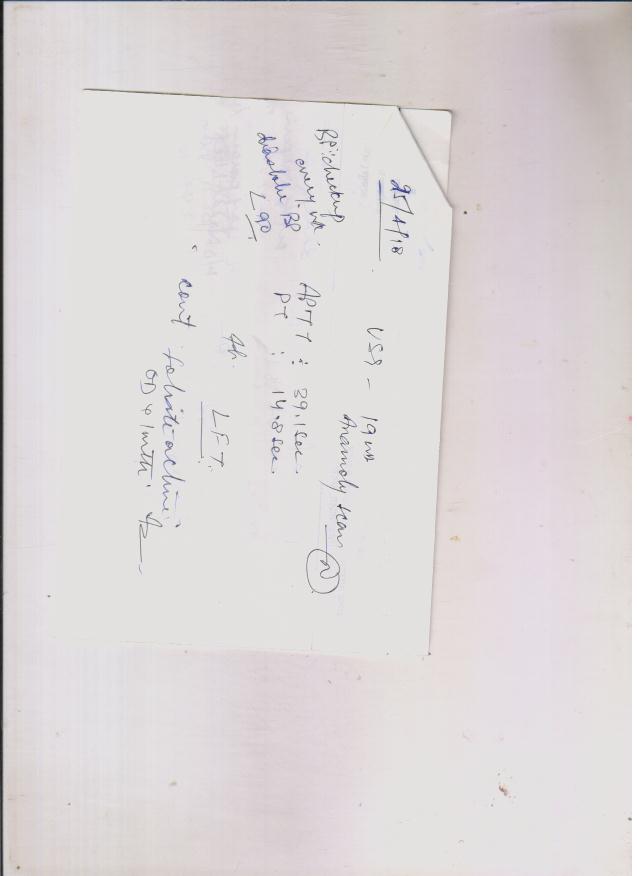 25/4/18
USG - 19 wk
Anamoly scan (N)
BP: checkup
every wk.
diastolic BP
< 90
APTT : 39.1 sec.
PT : 14.8 sec.
LFT:
cont
OD x 1 mth.